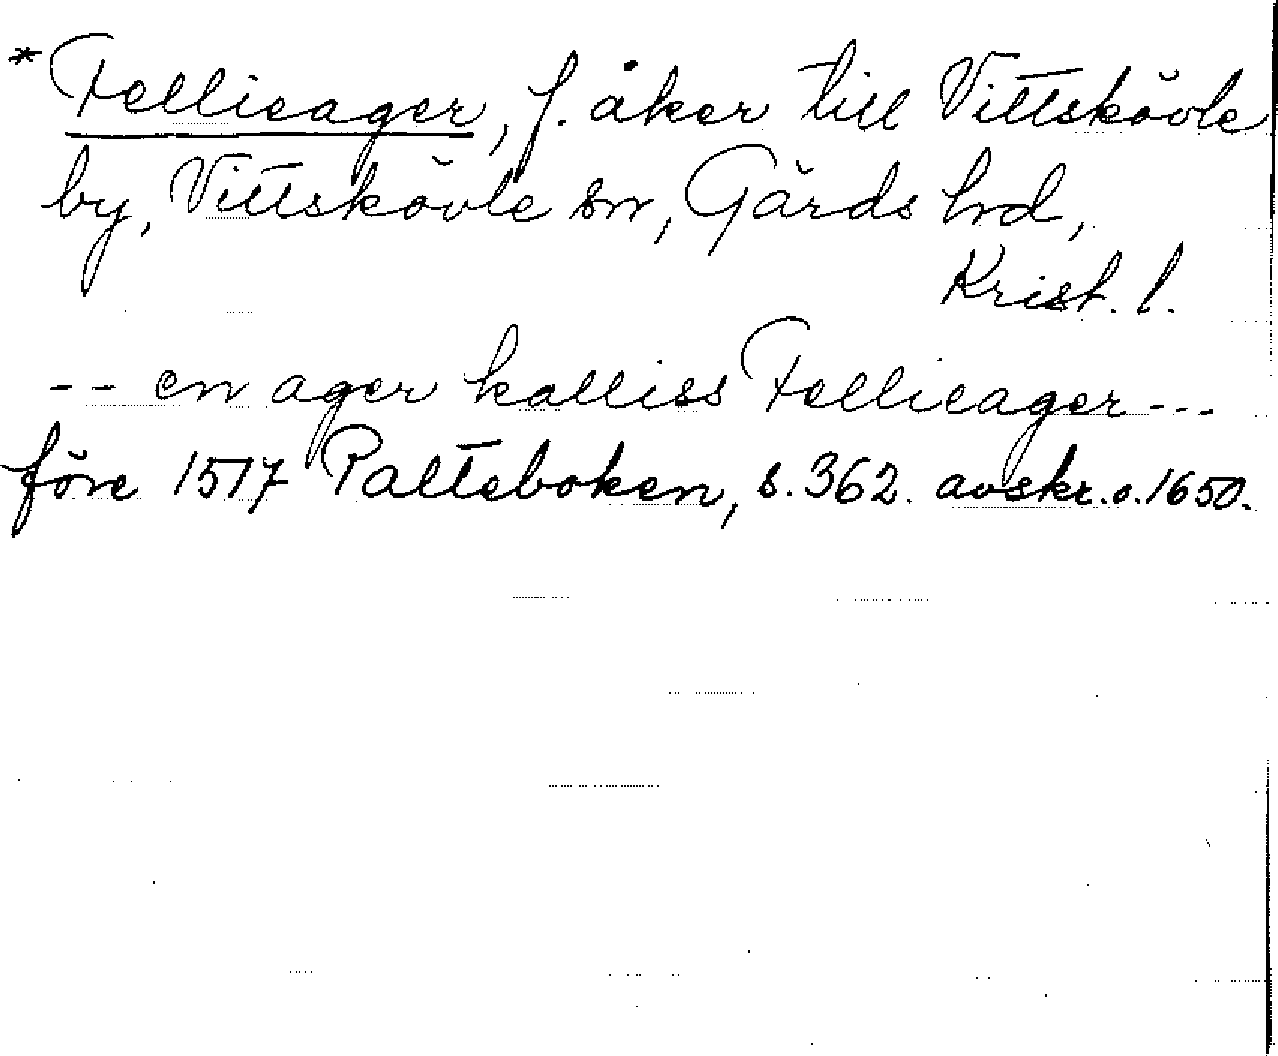 *Fellieager, f. åker till Vittskövle
by, Vittskövle sn, Gärds hd,
Krist. l.
-- en ager kalliss Fellieager ---
före 1517 Palteboken, s. 362. avskr. o. 1650.